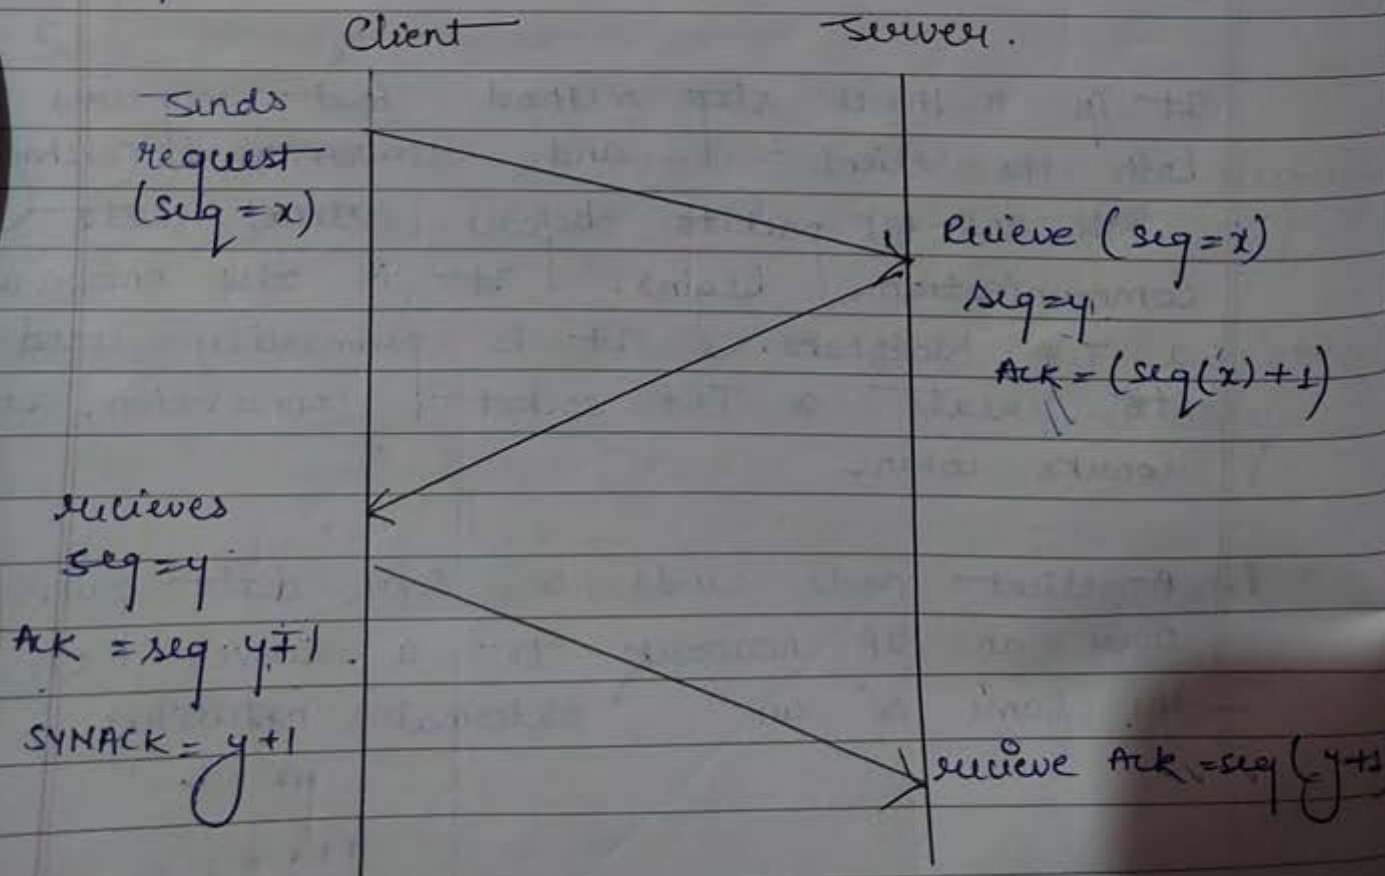 Client Server.
Sends
request
(seq = x)
Recieve (seq = x)
seq = y
Ack = (seq(x) + 1)
recieves
seq = y
Ack = seq y+1.
SYNACK = y+1
recieve Ack = seq (y+1